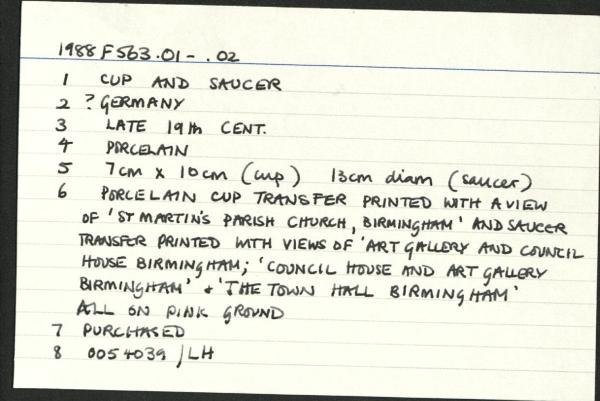 1988 F 563.01 - .02
1 CUP AND SAUCER
2 ? GERMANY
3 LATE 19th CENT.
4 PORCELAIN
5 7cm x 10cm (cup) 13cm diam (saucer)
6 PORCELAIN CUP TRANSFER PRINTED WITH A VIEW
OF 'ST MARTIN'S PARISH CHURCH, BIRMINGHAM' AND SAUCER
TRANSFER PRINTED WITH VIEWS OF 'ART GALLERY AND COUNCIL
HOUSE BIRMINGHAM; 'COUNCIL HOUSE AND ART GALLERY
BIRMINGHAM' + 'THE TOWN HALL BIRMINGHAM'
ALL ON PINK GROUND
7 PURCHASED
8 0054039 / LH